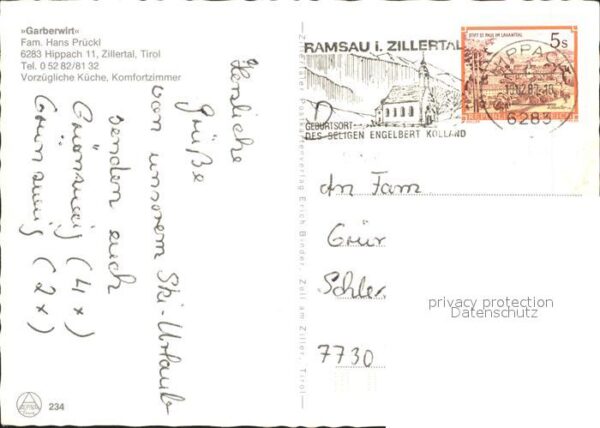 »Garberwirt«
Fam. Hans Prückl
6283 Hippach 11, Zillertal, Tirol
Tel. 0 52 82/81 32
Vorzügliche Küche, Komfortzimmer
Herzliche
Grüße
von unserem Ski-Urlaub
senden euch
(4x)
(2x)
234
Zillertaler Postkartenverlag Erich Binder, Zell am Ziller, Tirol
RAMSAU i. ZILLERTAL
GEBURTSORT
DES SELIGEN ENGELBERT KOLLAND
STIFT ST. PAUL IM LAVANTTAL
5s
REPUBLIK ÖSTERREICH
HIPPACH
6283
An Fam
Grür
Schler
7730
privacy protection
Datenschutz